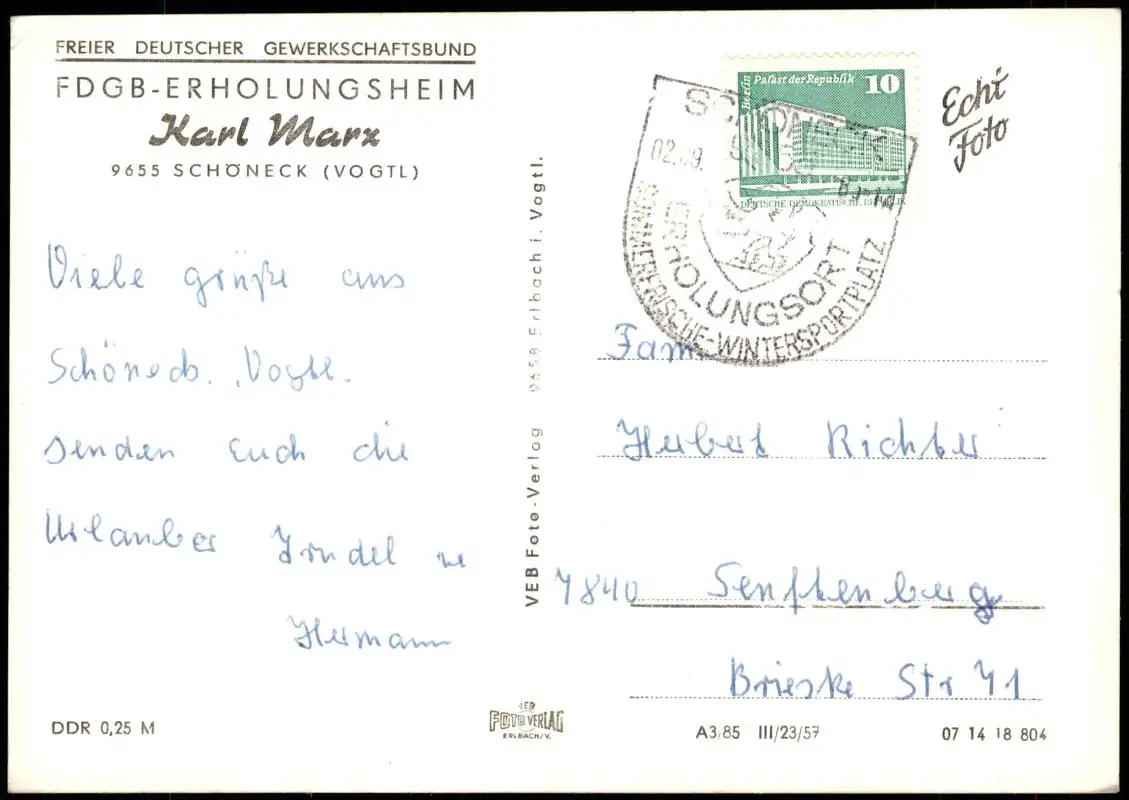 FREIER DEUTSCHER GEWERKSCHAFTSBUND
FDGB-ERHOLUNGSHEIM
Karl Marx
9655 SCHÖNECK (VOGTL)
Viele grüße aus
Schöneck. Vogtl.
senden Euch die
Urlauber Trudel u
Hermann
DDR 0,25 M
VEB Foto-Verlag 9658 Erlbach i. Vogtl.
VEB
FOTO VERLAG
ERLBACH/V.
Berlin Palast der Republik 10
DEUTSCHE DEMOKRATISCHE REPUBLIK
SCHÖNECK
02.09.
ERHOLUNGSORT
SOMMERFRISCHE-WINTERSPORTPLATZ
Echt
Foto
Fam.
Herbert Richter
7840 Senftenberg
Brieske Str 41
A3/85 III/23/57
07 14 18 804